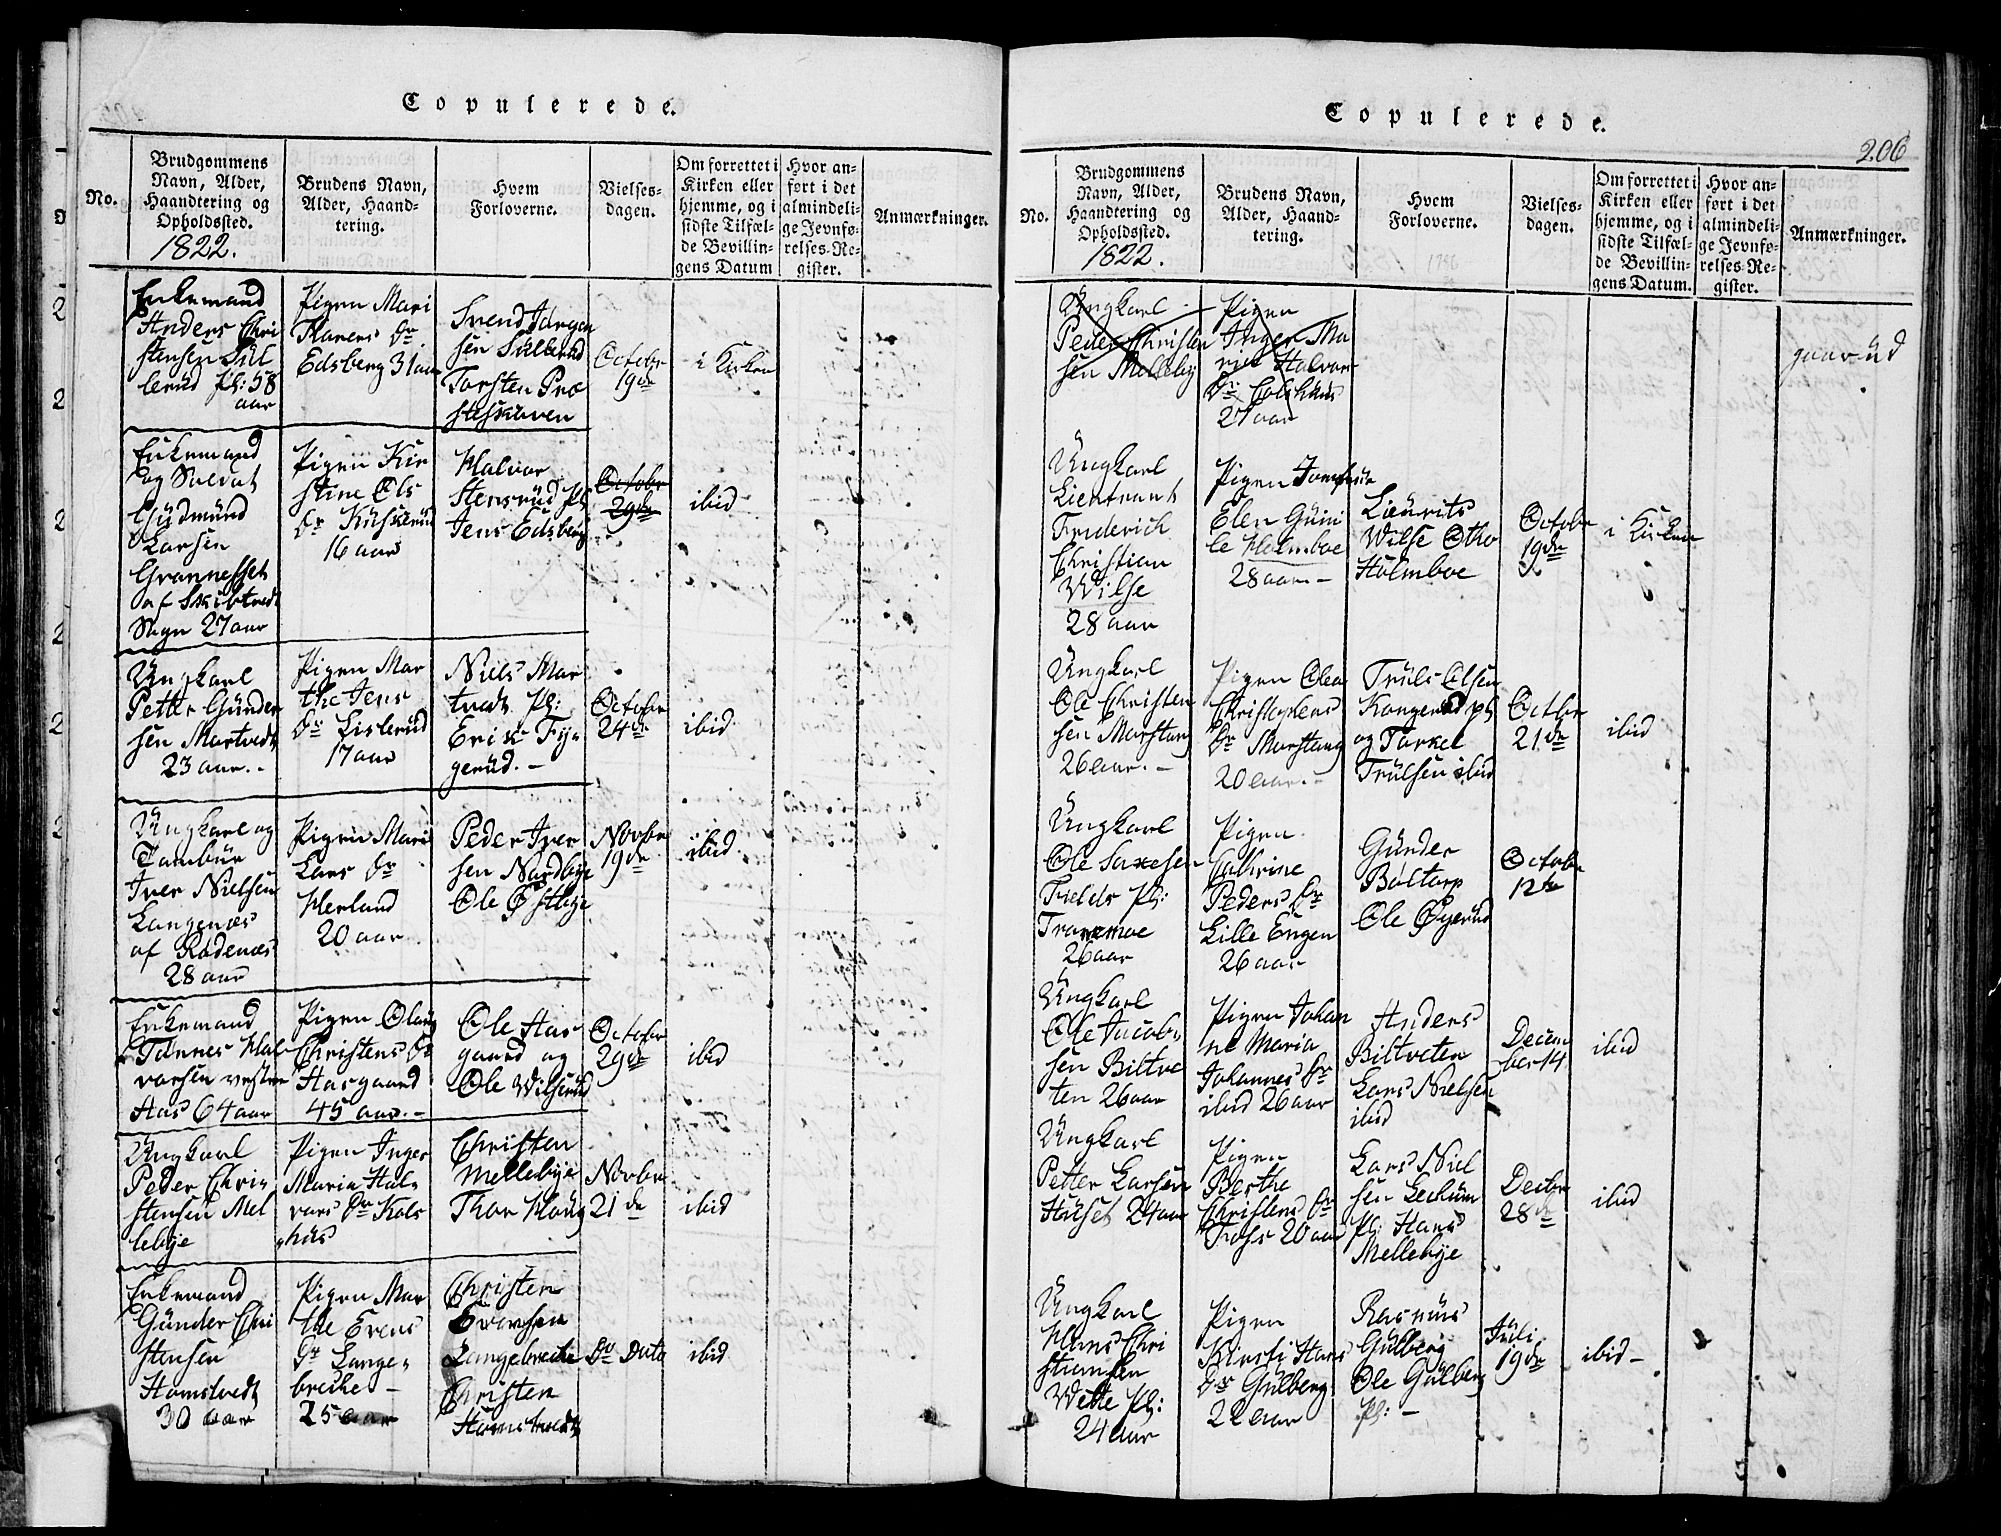 Copulerede.
No.
Brudgommens
Navn, Alder,
Haandtering og
Opholdssted.
1822.
Brudens Navn,
Alder, Haand-
tering.
Hvem
Forloverne.
Vielses-
dagen.
Om forrettet i
Kirken eller
hjemme, og i
sidste Tilfæl-
de Bevillin-
gens Datum
Hvor an-
ført i det
almindeli-
ge Jevnfø-
relses-Re-
gister.
Anmærkninger.
Enkemand
Anders Chri
stensen Sül
lerud pl: 58
aar
Pigen Mari
Larers Dr
Edsberg 31 aar
Svend Jørgen
sen Sülerud
Torsten Præ
steskoven
Octobr
19de
i Kirken
Enkemand
og Soldat
Gudmünd
Larsen
Grannesset
af Skibtvedt
Sogn 27 aar
Pigen Kir
stine Ols
Dr Küskerüd
16 aar
Halvor
Stensrüd pl
Jens Edsberg
Octobr
29de
ibid
Ungkarl
Petter Günder
sen Mortvedt
23 aar.-
Pigen Mar
the Jens
Dr Lislerüd
17 aar
Niels Mor
tvedt pl:
Erik Fy-
gerüd.-
Octobr
24de
ibid
Ungkarl og
Tambür
Iver Nielsen
Langenæs
af Rødenæs
28 aar
Pigen Mari
Lars Dr
Herland
20 aar
Peder Iver
sen Nordbye
Ole Østbye
Novbr
19de
ibid
Enkemand
Tønnes Hal
vorsen vestre
Aas 64 aar
Pigen Olaug
Christens Dr
Aasgaard
45 aar.-
Ole Aas
gaard og
Ole Wilserüd
Octobr
29de
ibid
Ungkarl
Peder Chri-
stensen Mel
lebye
Pigen Inger
Maria Hal-
vors Dr Kols
hüs
Christen
Mellebye
Thor Haug
Novbr
21de
ibid
Enkemand
Günder Chri
stensen
Homstvedt
30 aar
Pigen Mar
the Evens
Dr Lange-
brecke -
25 aar
Christen
Evensen
Langebrecke
Christen
Homstvedt
Do Dato
ibid
Copulerede.
206
No.
Brudgommens
Navn, Alder,
Haandtering og
Opholdssted.
1822.
Brudens Navn,
Alder, Haand-
tering.
Hvem
Forloverne.
Vielses-
dagen.
Om forrettet i
Kirken eller
hjemme, og i
sidste Tilfæl-
de Bevillin-
gens Datum.
Hvor an-
ført i det
almindeli-
ge Jevnfø-
relses-Re-
gister.
Anmærkninger.
Ungkarl
Peder Christen
sen Melleby
Pigen
Inger Ma
ria Halvors
Dr Colshüs
27 aar
gaar ud
Ungkarl
Lieutnant
Friderich
Christian
Wilse
28 aar
Pigen Jomfrüe
Elen Güni
le Holmboe
28 aar.-
Laurits
Wilse Otho
Holmboe
Octobr
19de
i Kirken
Ungkarl
Ole Christen
sen Morstang
26 aar.-
Pigen Olea
Christophers
Dr Morstang
20 aar.-
Trüls Olsen
Kongerüd pl
og Torkel
Trülsen ibid
Octbr
21de
ibid
Ungkarl
Ole Saxesen
Fields pl:
Tronemoe
26 aar
Pigen
Cathrine
Peders Dr
Lille Engen
26 aar
Günder
Boltorp
Ole Øyerüd
Octobr
12te
Ungkarl
Ole Jacob-
sen Biltve
ten 26 aar
Pigen Johan
ne Maria
Johannes Dr
ibid 26 aar
Anders
Biltveten
Lars Nielsen
ibid
Decem
ber 14
ibid
Ungkarl
Petter Larsen
Hüset 24 aar
Pigen
Berthe
Christens Dr
Foss 20 aar
Lars Niel
sen Lechüm
pl: Hans
Mellebye
Decbr
28de
ibid
Ungkarl
Hans Chri
stiansen
Wette pl:
24 aar
Pigen
Kirsti Hans
Dr Gülberg
22 aar
Rasmüs
Gülberg
Ole Gülberg
pl: -
Jüli
19de
ibid -